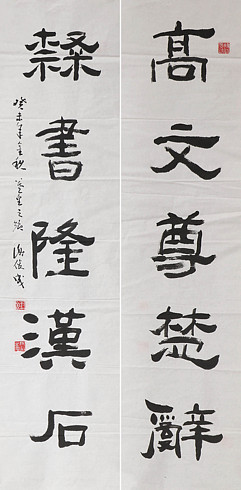 高文尊楚辭
隸書隆漢石
癸未年金秋